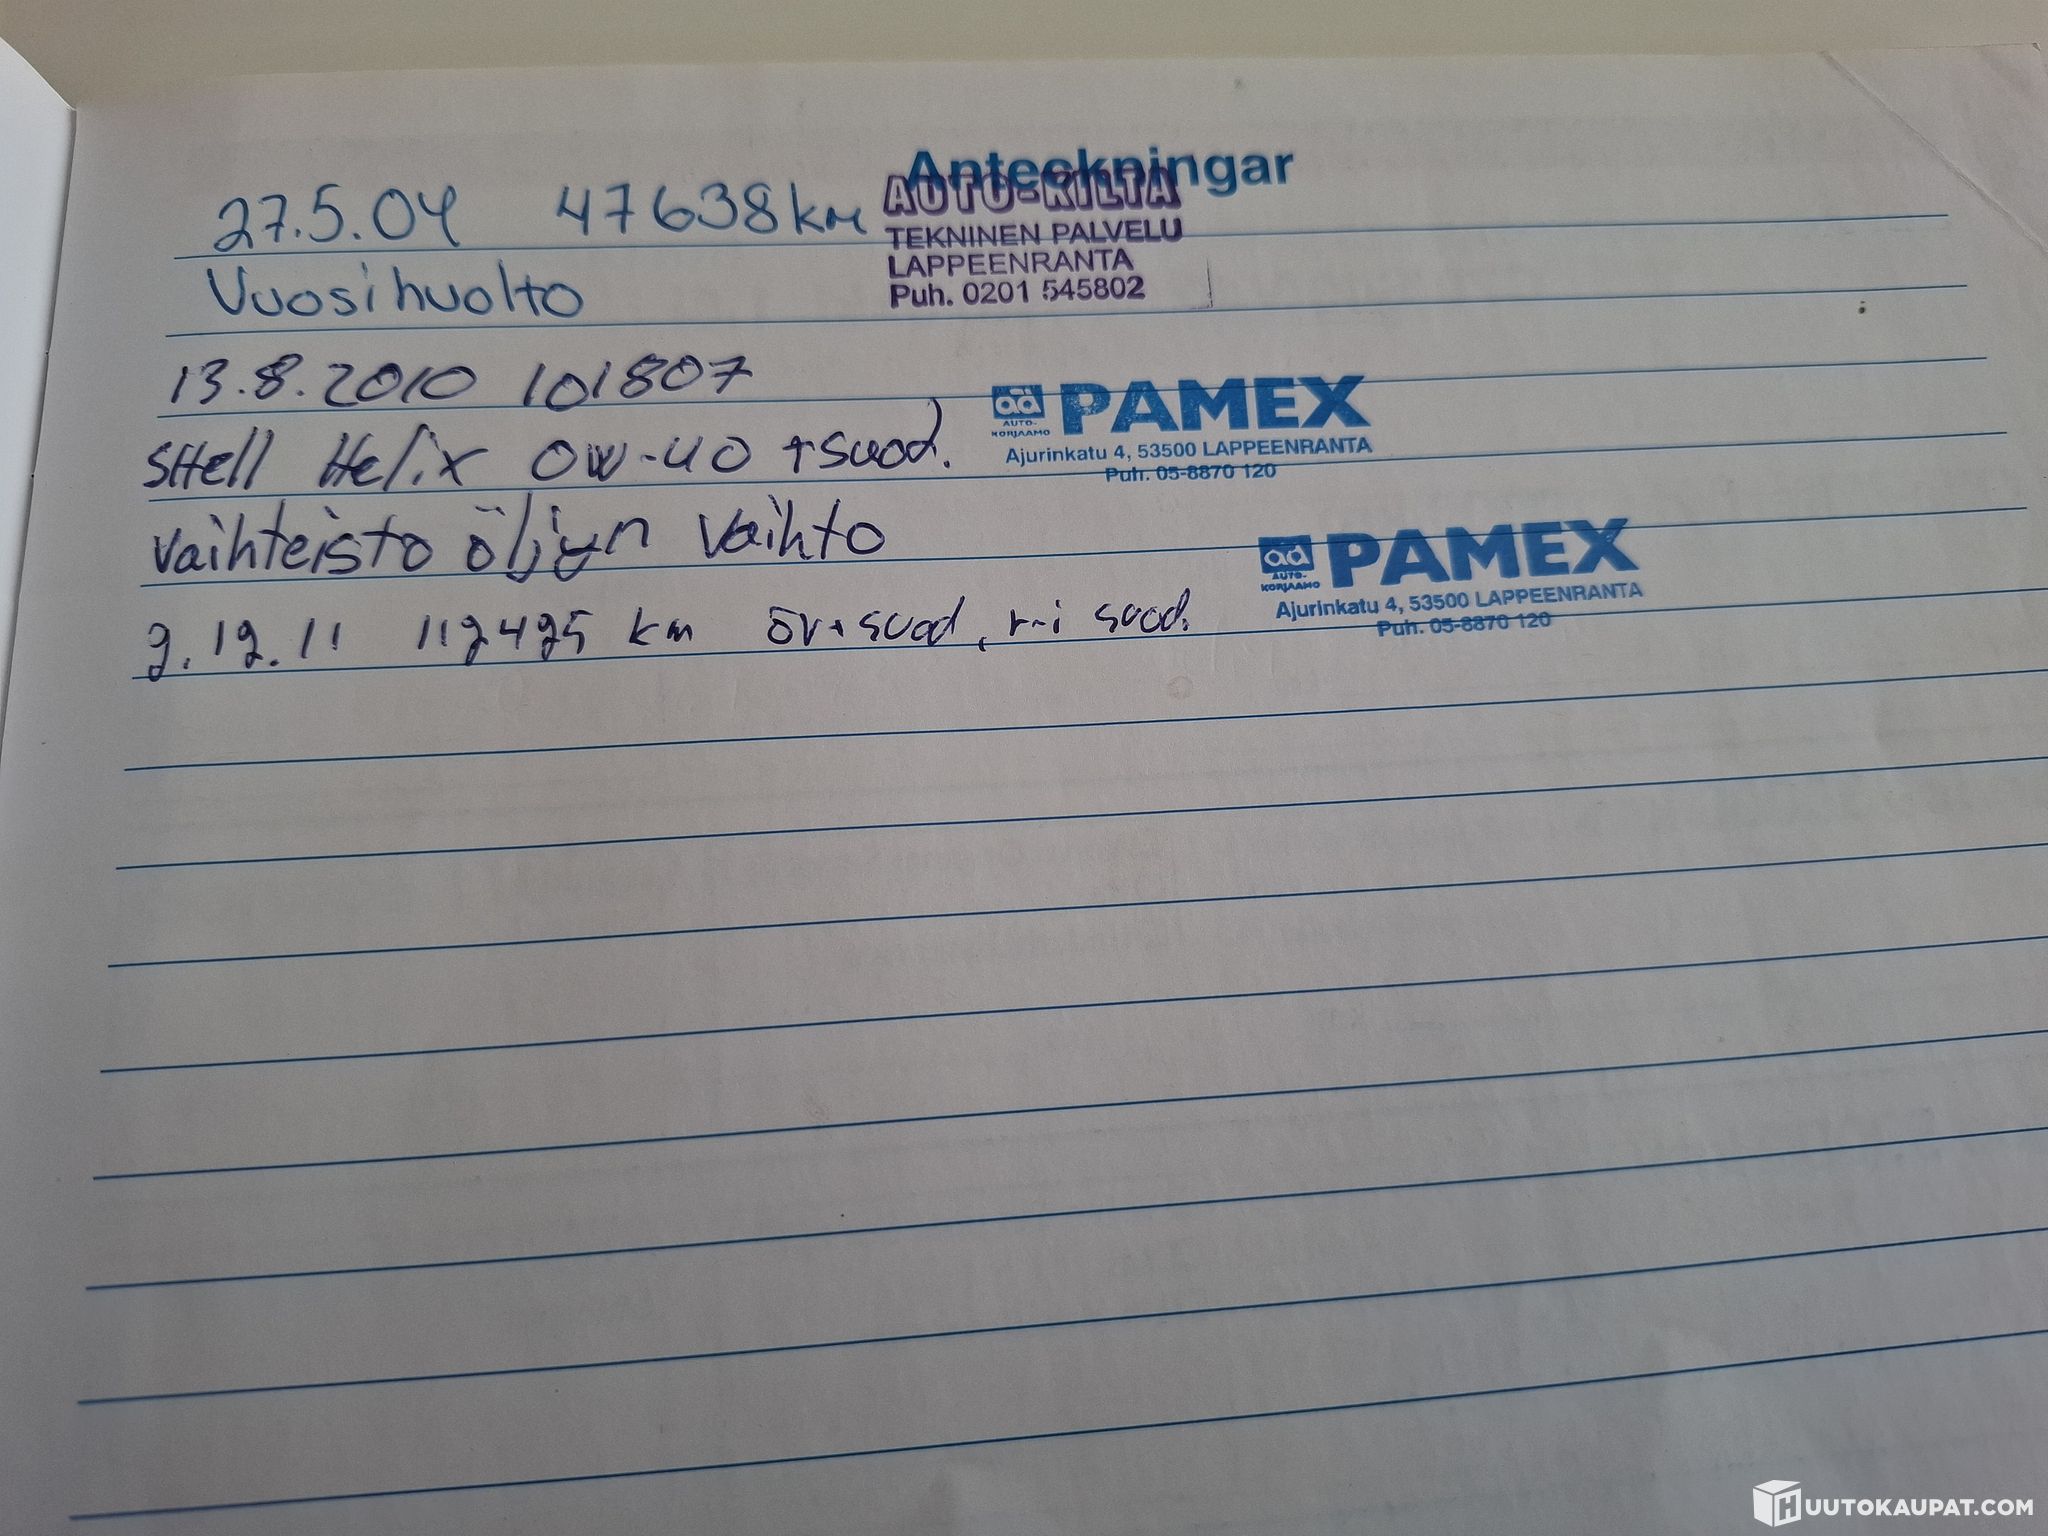 Anteckningar
27.5.04 47638 km
AUTO-KILTA
TEKNINEN PALVELU
LAPPEENRANTA
Puh. 0201 545802
Vuosihuolto
13.8.2010 101807
SHell Helix 0W-40 + suod.
ad
AUTO-
KORJAAMO
PAMEX
Ajurinkatu 4, 53500 LAPPEENRANTA
Puh. 05-8870 120
vaihteisto öljyn vaihto
9.12.11 112425 km öv+suod, r-i suod.
ad
AUTO-
KORJAAMO
PAMEX
Ajurinkatu 4, 53500 LAPPEENRANTA
Puh. 05-8870 120
HUUTOKAUPAT.COM